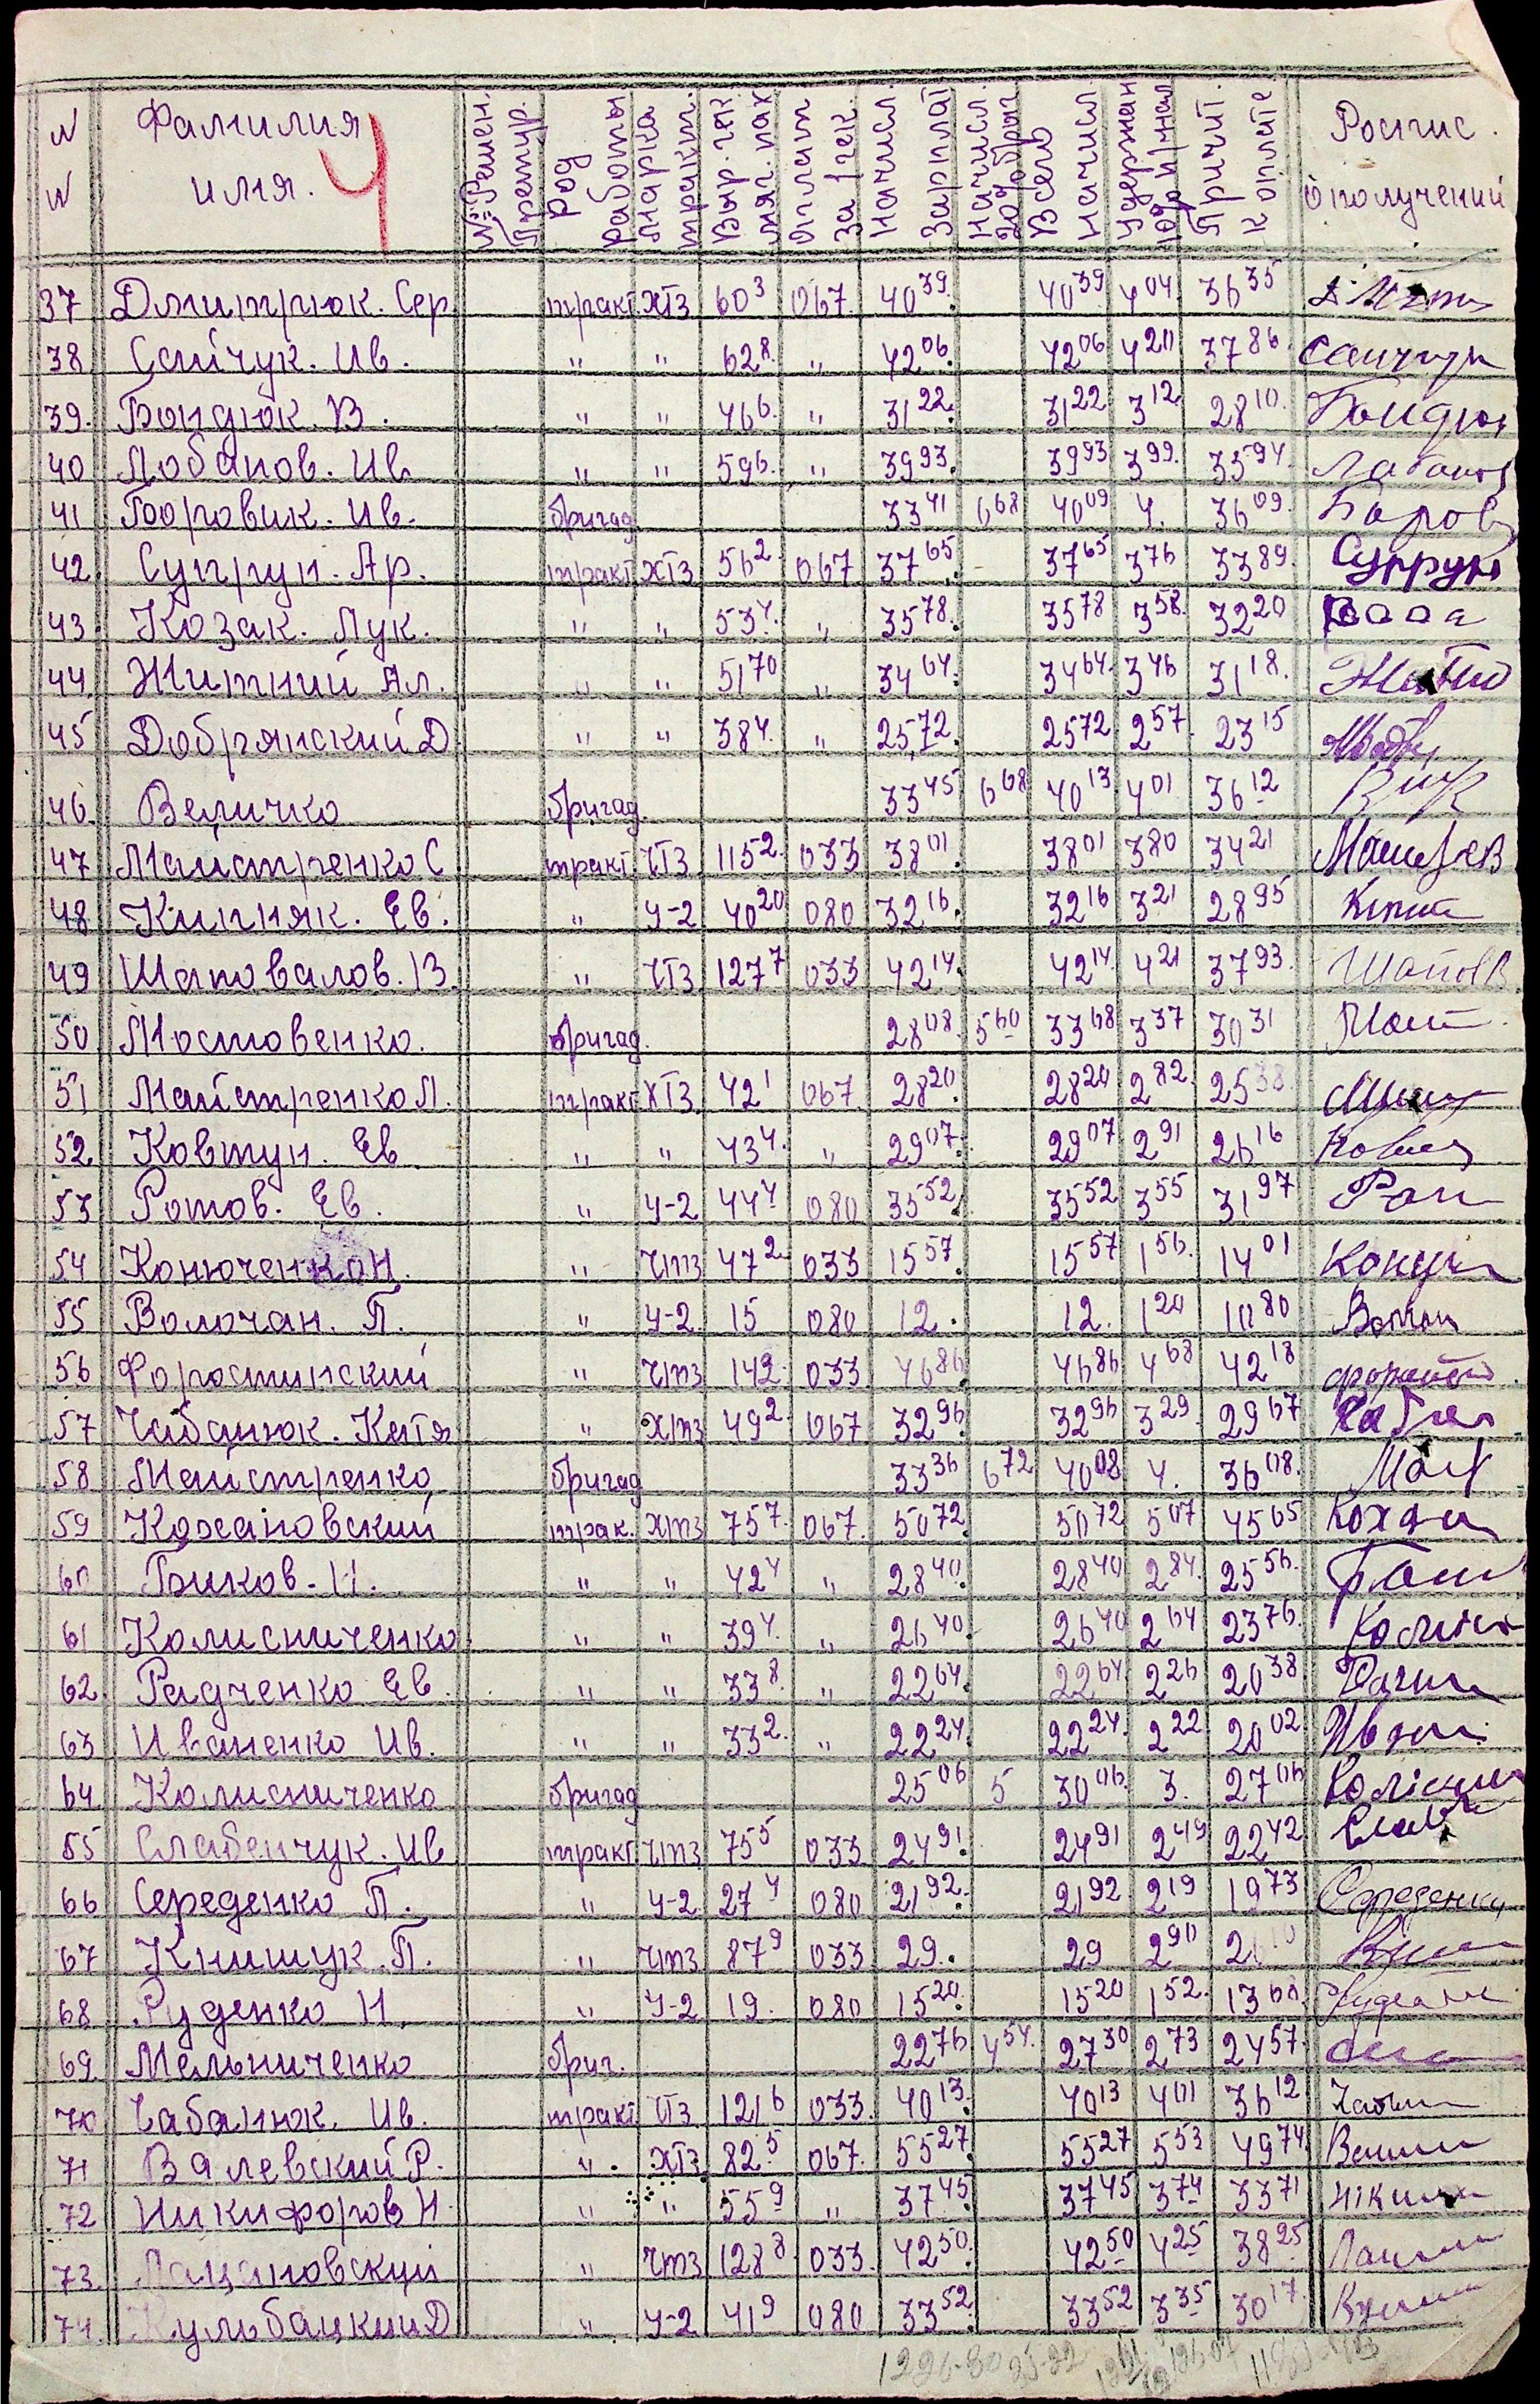 № № Фамилия имя. 4 №= Ранен. претур. род работы марка тракт. Выр. гек. мяг. пах оплат за 1 гек. Начисл. Зарплат начисл. 20% бриг Всего начисл. Удержан 10% Причит. к оплате Роспис. о получений
37 Дмитрюк. Сер тракт. ХТЗ 60 3 067 40 39 40 39 4 04 36 35
38 Сайчук. Ив. " " 62 8 " 42 06 42 06 4 20 37 86 Сайчук
39. Бондюк. В. " " 46 6 " 31 22 31 22 3 12 28 10 Бондюк
40 Лобанов. Ив " " 59 6 " 39 93 39 93 3 99 35 94 Лобанов
41 Боровик. Ив. бригад 33 41 6 68 40 09 4. 36 09 Боров
42 Супрун. Ар. тракт ХТЗ 56 2 067 37 65 37 65 3 76 33 89 Супрун
43 Козак. Лук. " " 53 4 " 35 78 35 78 3 58 32 20
44 Житний Ал. " " 51 70 " 34 64 34 64 3 46 31 18
45 Добрянский Д " " 38 4 " 25 72 25 72 2 57 23 15
46. Величко бригад. 33 45 6 68 40 13 4 01 36 12
47 Майстренко С тракт ЧТЗ 115 2 033 38 01 38 01 3 80 34 21
48 Кипняк. Ев. " У-2 40 20 080 32 16 32 16 3 21 28 95
49 Шаповалов. В. " ЧТЗ 127 7 033 42 14 42 14 4 21 37 93 ШаповВ
50 Мостовенко. бригад. 28 08 5 60 33 68 3 37 30 31
51 Майстренко Л. тракт ХТЗ 42 1 067 28 20 28 20 2 82 25 38
52 Ковтун. Ев " " 43 4 " 29 07 29 07 2 91 26 16
53 Ротов. Ев. " У-2 44 4 080 35 52 35 52 3 55 31 97
54 Конюченко Н. " Чтз 47 2 033 15 57 15 57 1 56 14 01
55 Волочан. П. " У-2 15 080 12. 12. 1 20 10 80
56 Форостинский " Чтз 142 033 46 86 46 86 4 68 42 18
57 Чабанюк. Катя " Хтз 49 2 067 32 96 32 96 3 29 29 67
58 Майстренко бригад 33 36 6 72 40 08 4. 36 08
59 Кохановский трак. Хтз 75 7 067 50 72 50 72 5 07 45 65
60 Биков. Н. " " 42 4 " 28 40 28 40 2 84 25 56
61 Колисниченко " " 39 4 " 26 40 26 40 2 64 23 76
62 Радченко Ев. " " 33 8 " 22 64 22 64 2 26 20 38
63 Иваненко Ив. " " 33 2 " 22 24 22 24 2 22 20 02
64 Колисниченко бригад 25 06 5 30 06 3. 27 06
65 Слабенчук. Ив тракт. Чтз 75 5 033 24 91 24 91 2 49 22 42
66 Середенко П. " У-2 27 4 080 21 92 21 92 2 19 19 73 Середенко
67 Книшук. П. " Чтз 87 9 033 29. 29 2 90
68 Руденко Н. " У-2 19. 080 15 20 15 20 1 52 13 68
69 Мельниченко бриг. 22 76 4 54 27 30 2 73 24 57
70 Чабанюк. Ив. тракт ЧТЗ 121 6 033 40 13 40 13 4 01 36 12
71 Валевский Р. " ХТЗ 82 5 067 55 27 55 27 5 53 49 74
72 Никифоров Н. " " 55 9 " 37 45 37 45 3 74 33 71
73. Лацановский " Чтз 128 8 033 42 50 42 50 4 25 38 25
74. Кульбацкий Д " У-2 41 9 080 33 52 33 52 3 35 30 17
1226-80